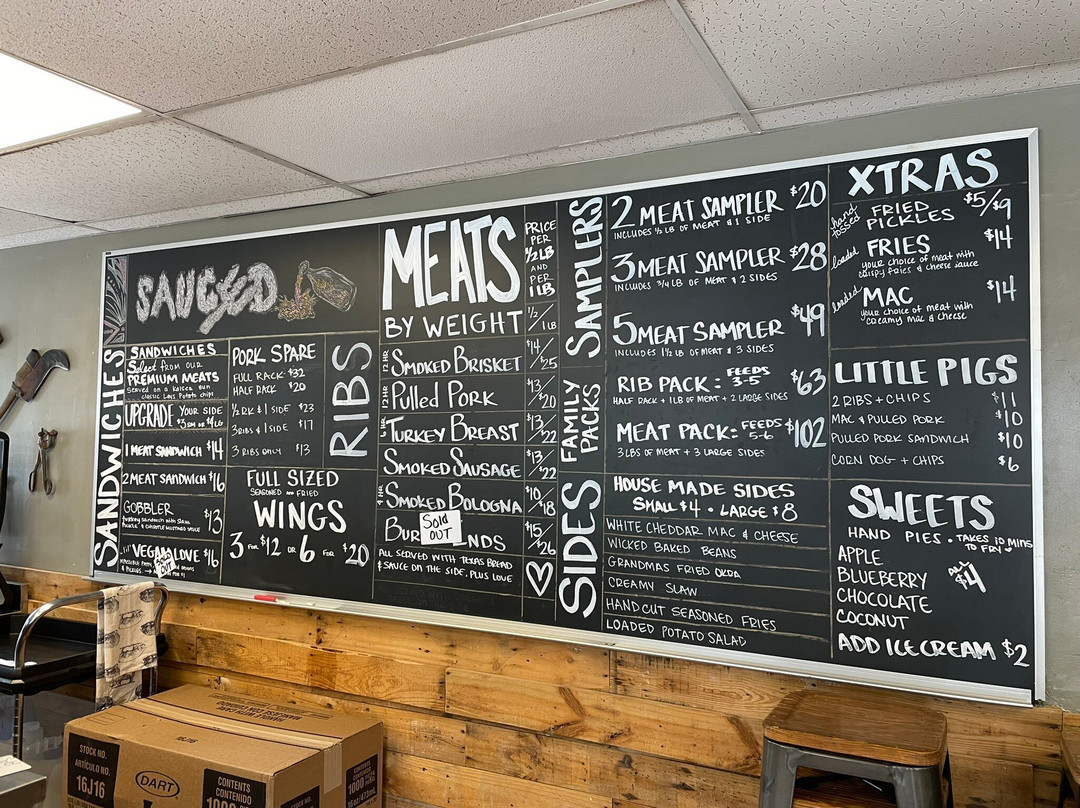 SAUCED
SANDWICHES
SANDWICHES
Select from our
PREMIUM MEATS
Served on a kaiser bun
classic Lays Potato chips
UPGRADE YOUR SIDE
$3 SM OR $4 LG
1 MEAT SANDWICH $14
2 MEAT SANDWICH $16
GOBBLER $13
turkey sandwich with slaw
pickle & chipotle mustard sauce
VEGAN LOVE $16
OUT
RIBS
PORK SPARE
FULL RACK $32
HALF RACK $20
1/2 RK & 1 SIDE $23
3 RIBS & 1 SIDE $17
3 RIBS ONLY $13
FULL SIZED
SEASONED AND FRIED
WINGS
3 FOR $12 OR 6 FOR $20
MEATS
BY WEIGHT
PRICE
PER
1/2 LB
AND
PER
1 LB
1/2 / 1LB
12 HR SMOKED BRISKET $14/$25
12 HR Pulled Pork $13/$20
6 HR TURKEY BREAST $13/$22
SMOKED SAUSAGE $13/$22
4 HR SMOKED BOLOGNA $10/$18
BUR NDS $15/$26
Sold
OUT
ALL SERVED WITH TEXAS BREAD
& SAUCE ON THE SIDE, PLUS LOVE
SAMPLERS
2 MEAT SAMPLER $20
INCLUDES 1/2 LB OF MEAT & 1 SIDE
3 MEAT SAMPLER $28
INCLUDES 3/4 LB OF MEAT & 2 SIDES
5 MEAT SAMPLER $49
INCLUDES 1 1/2 LB OF MEAT & 3 SIDES
FAMILY
PACKS
RIB PACK: FEEDS 3-5 $63
HALF RACK + 1 LB OF MEAT + 2 LARGE SIDES
MEAT PACK: FEEDS 5-6 $102
3 LBS OF MEAT + 3 LARGE SIDES
SIDES
HOUSE MADE SIDES
SMALL $4 • LARGE $8
WHITE CHEDDAR MAC & CHEESE
WICKED BAKED BEANS
GRANDMAS FRIED OKRA
CREAMY SLAW
HAND CUT SEASONED FRIES
LOADED POTATO SALAD
XTRAS
hand tossed FRIED PICKLES $5/$9
loaded FRIES $14
your choice of meat with
crispy fries & cheese sauce
loaded MAC $14
your choice of meat with
creamy mac & cheese
LITTLE PIGS
2 RIBS + CHIPS $11
MAC & PULLED PORK $10
PULLED PORK SANDWICH $10
CORN DOG + CHIPS $6
SWEETS
HAND PIES • TAKES 10 MINS
TO FRY
APPLE
BLUEBERRY
CHOCOLATE
COCONUT
$4
ADD ICE CREAM $2
STOCK NO.
ARTÍCULO NO.
16J16
16J16
DART
CONTENTS
CONTENIDO